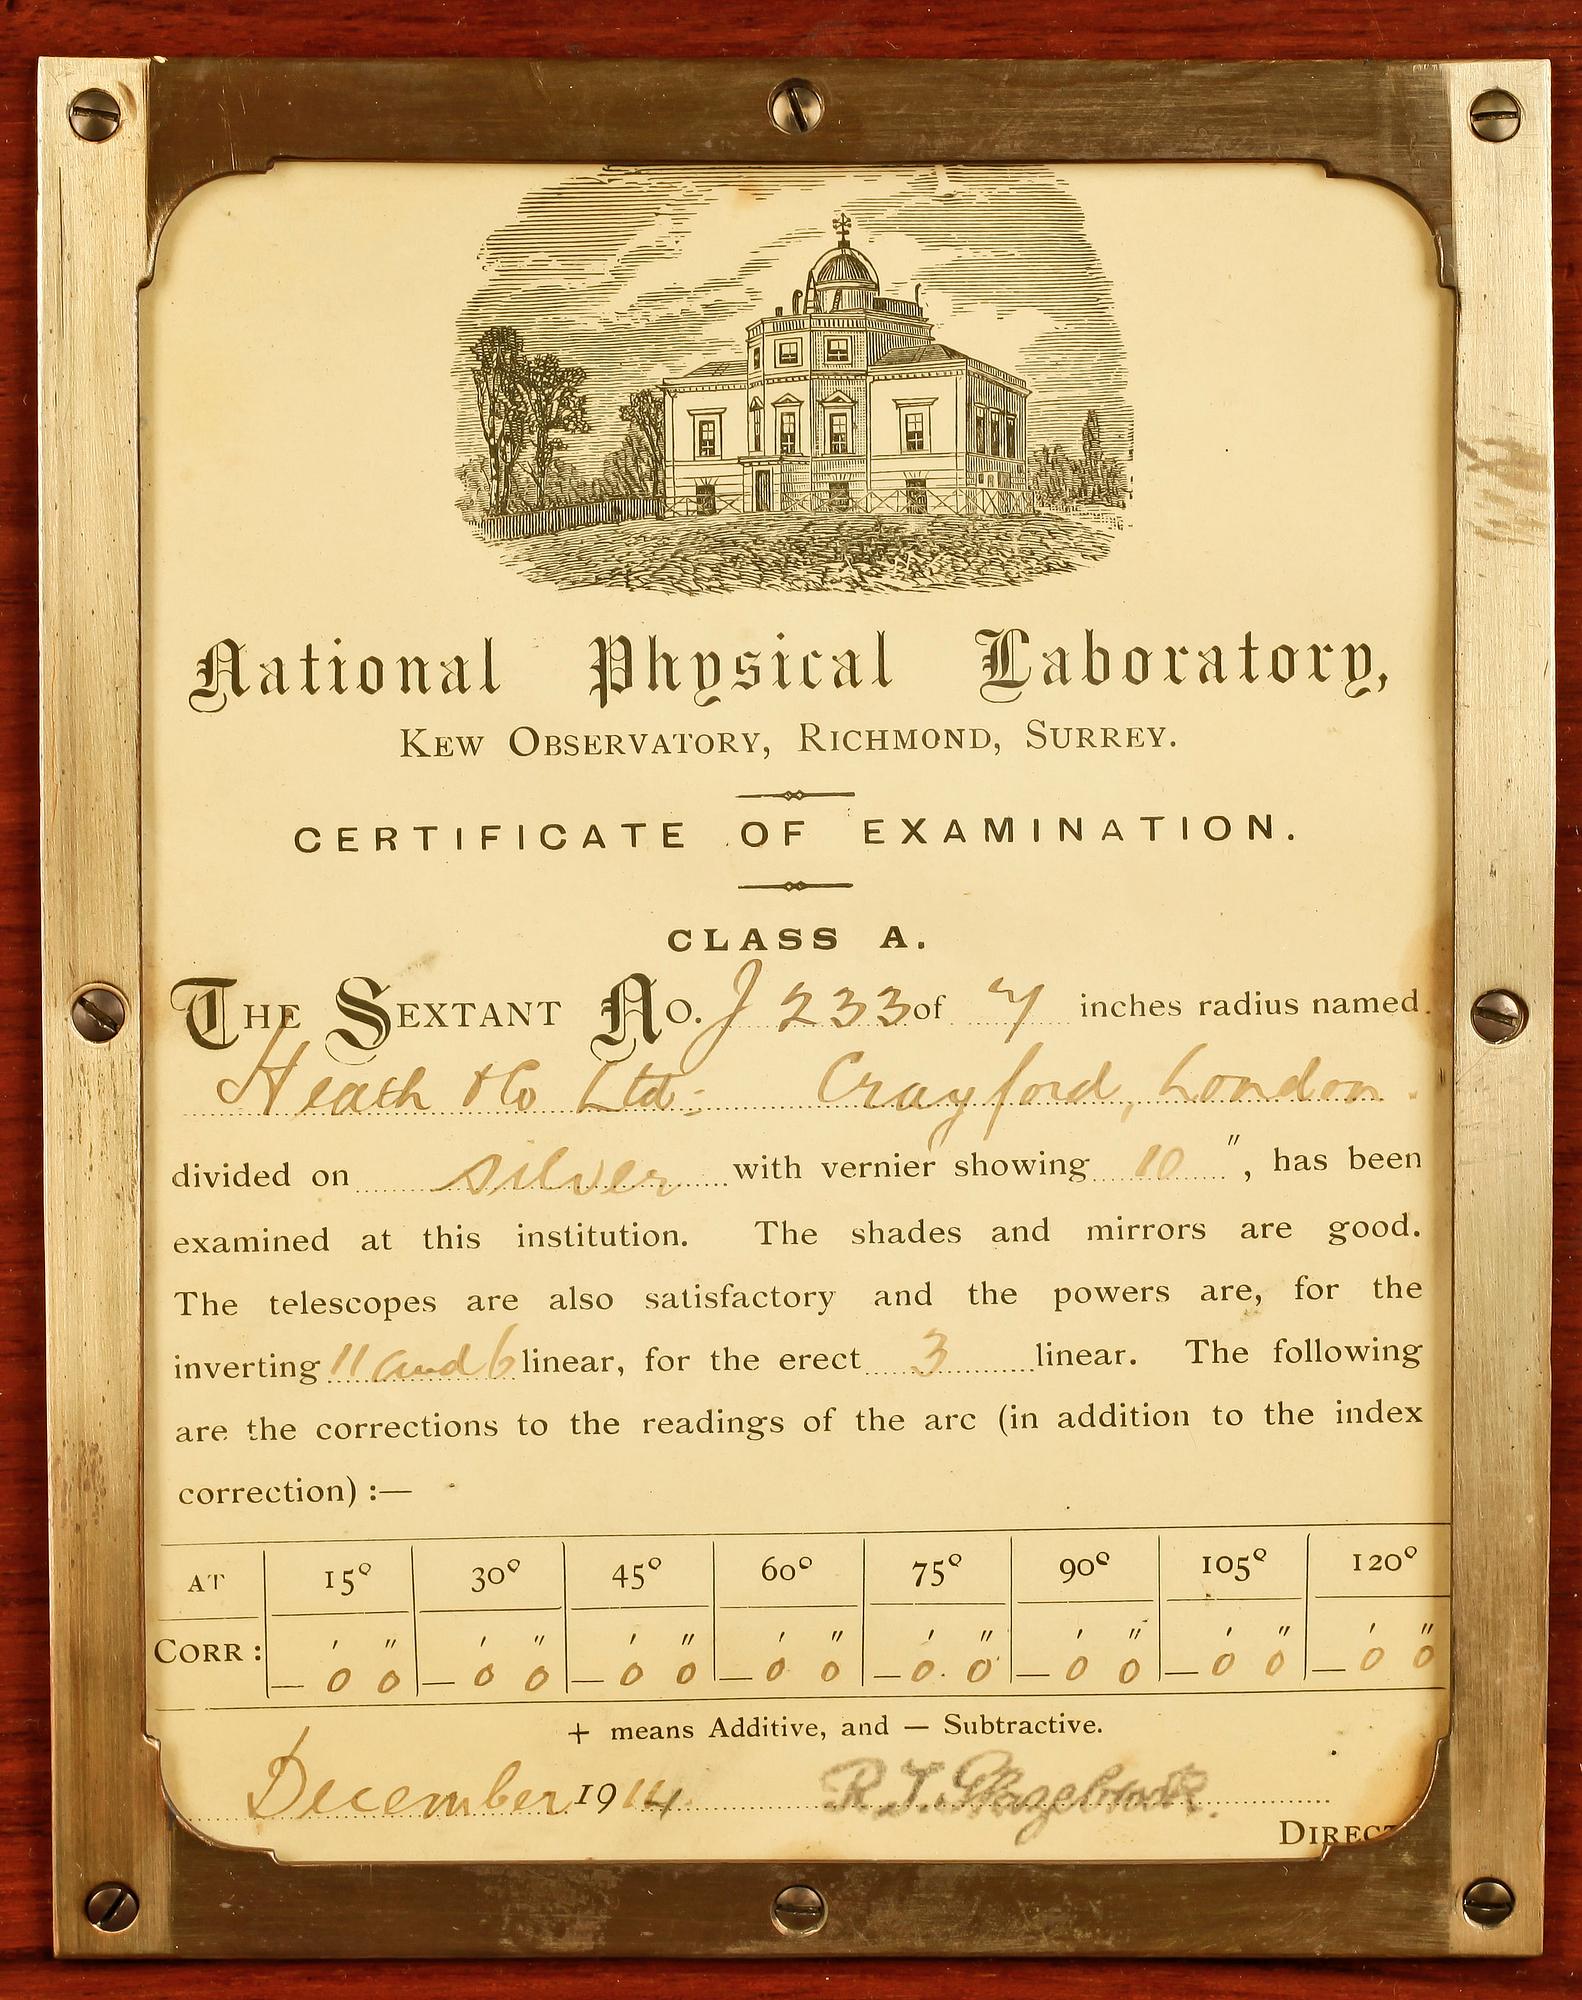 National Physical Laboratory,
KEW OBSERVATORY, RICHMOND, SURREY.
CERTIFICATE OF EXAMINATION.
CLASS A.
THE SEXTANT NO. J 233 of 7 inches radius named.
Heath & Co Ltd: Crayford, London.
divided on silver with vernier showing 10 ", has been
examined at this institution. The shades and mirrors are good.
The telescopes are also satisfactory and the powers are, for the
inverting 11 and 6 linear, for the erect 3 linear. The following
are the corrections to the readings of the arc (in addition to the index
correction) :—
AT 15° 30° 45° 60° 75° 90° 105° 120°
CORR : ' " ' " ' " ' " ' " ' " ' " ' "
— 0 0 — 0 0 — 0 0 — 0 0 — 0. 0 — 0 0 — 0 0 — 0 0
+ means Additive, and — Subtractive.
December 1914 R. T. Glazebrook.
DIRECT